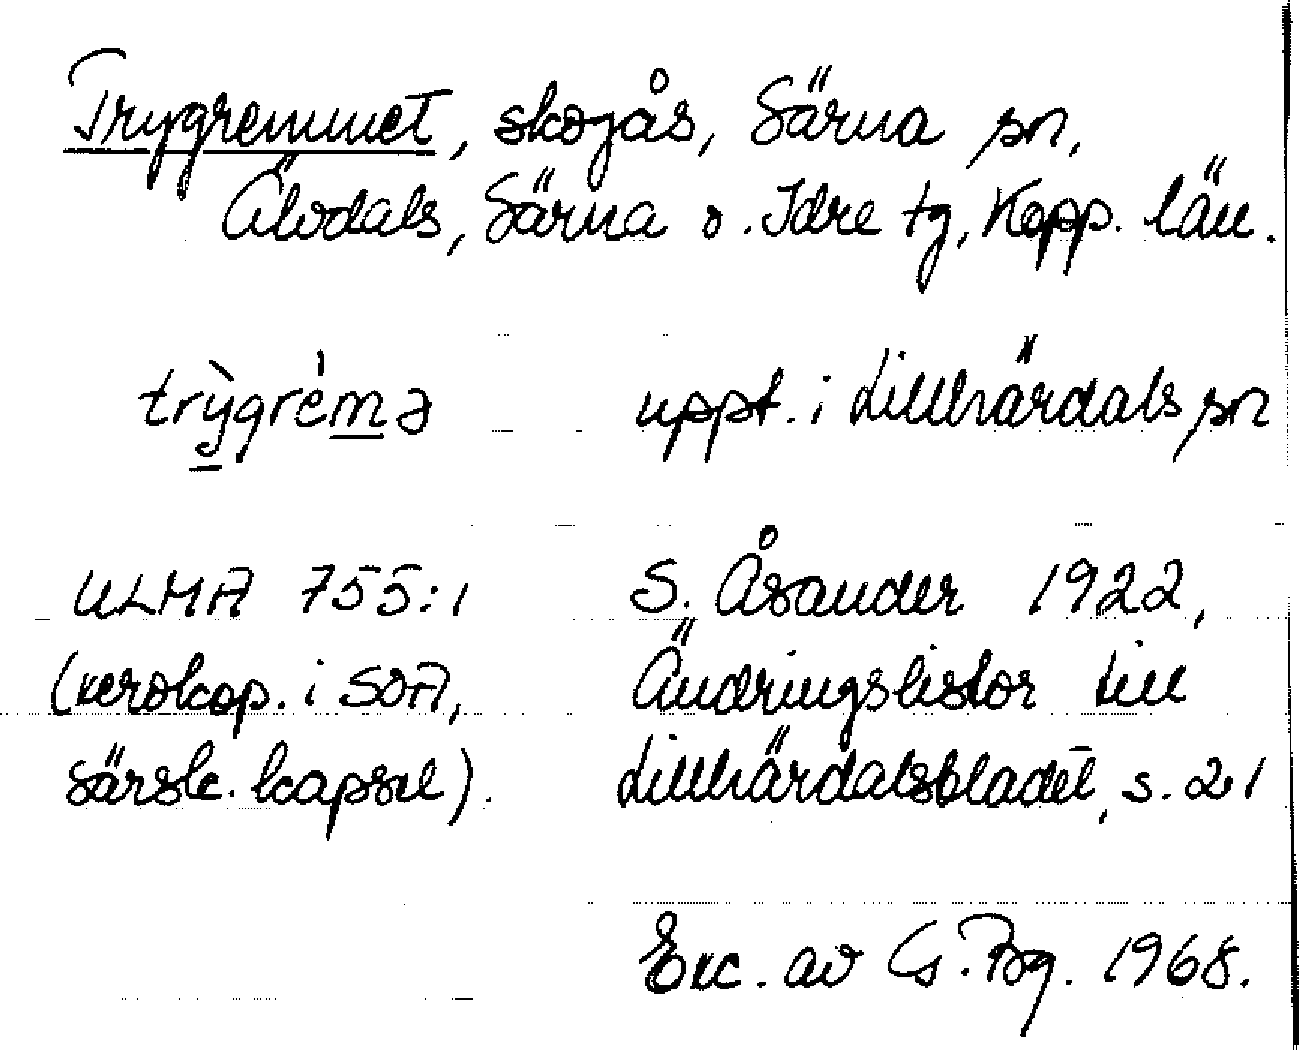 Trygremmet, skogås, Särna sn,
Älvdals, Särna o. Idre tg, Kopp. län.
trỳgrèmə uppt. i Lillhärdals sn
ULMA 755:1 S. Åsander 1922,
(xerokop. i SOA, Ändringslistor till
särsk. kapsel). Lillhärdalsbladet, s. 21
Exc. av G. Bg. 1968.